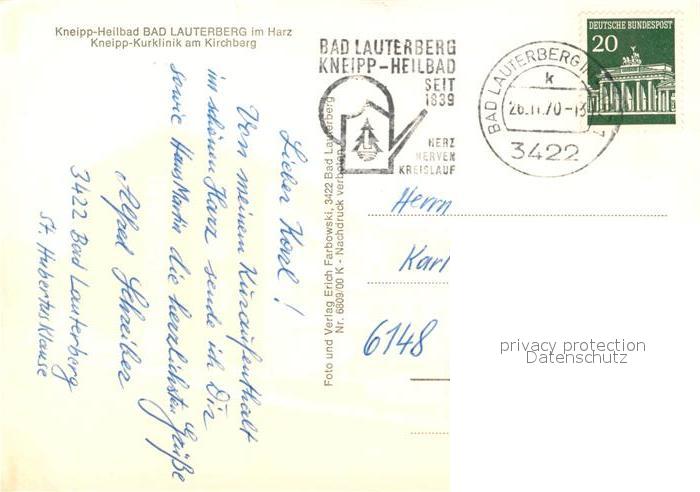 Kneipp-Heilbad BAD LAUTERBERG im Harz
Kneipp-Kurklinik am Kirchberg
Lieber Karl!
Von meinem Kuraufenthalt
im schönen Harz sende ich Dir
sowie Hans Martin die herzlichsten Grüße
Alfred Schreiber
3422 Bad Lauterberg
St. Hubertusklause
Foto und Verlag Erich Farbowski, 3422 Bad Lauterberg
Nr. 6609/00 K - Nachdruck verboten
BAD LAUTERBERG
KNEIPP-HEILBAD
SEIT
1839
HERZ
NERVEN
KREISLAUF
BAD LAUTERBERG
k
26.11.70-13
3422
DEUTSCHE BUNDESPOST
20
Herrn
Karl
6148
privacy protection
Datenschutz